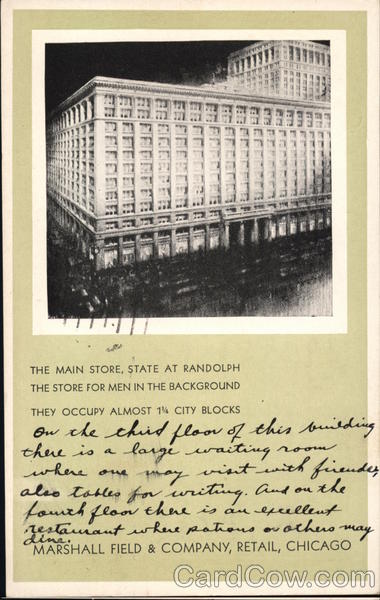 THE MAIN STORE, STATE AT RANDOLPH
THE STORE FOR MEN IN THE BACKGROUND
THEY OCCUPY ALMOST 1¼ CITY BLOCKS
On the third floor of this building
there is a large waiting room
where one may visit with firends,
also tables for writing. And on the
fourth floor there is an excellent
restaurant where patrons or others may
dine.
MARSHALL FIELD & COMPANY, RETAIL, CHICAGO
CardCow.com